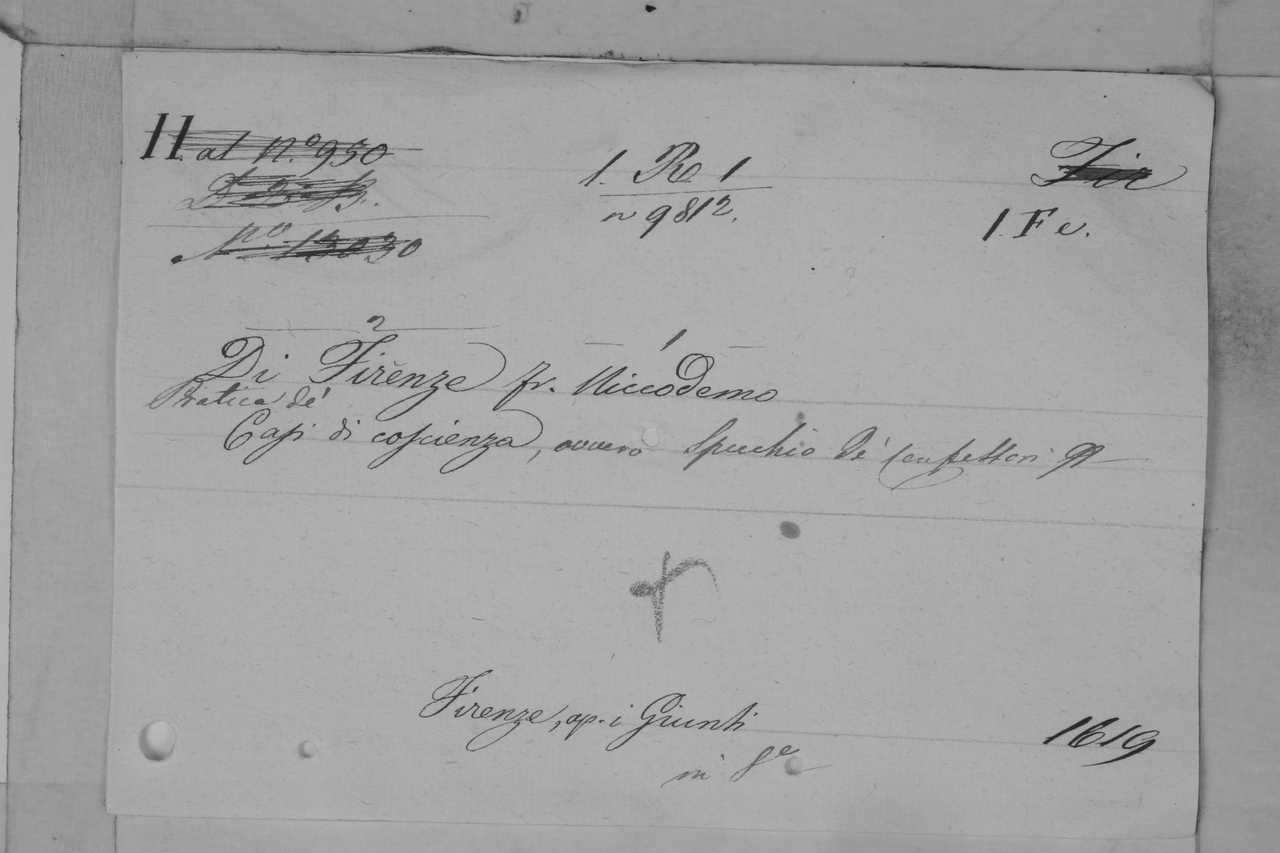 H. al N.º 950
1. R 1
Fir
n 9812.
1. F e.
Nº 13030
2
1
Di Firenze fr. Niccodemo
Pratica de'
Casi di coscienza, ovvero Specchio de' Confessori
Firenze, ap. i Giunti
1619
in 8º